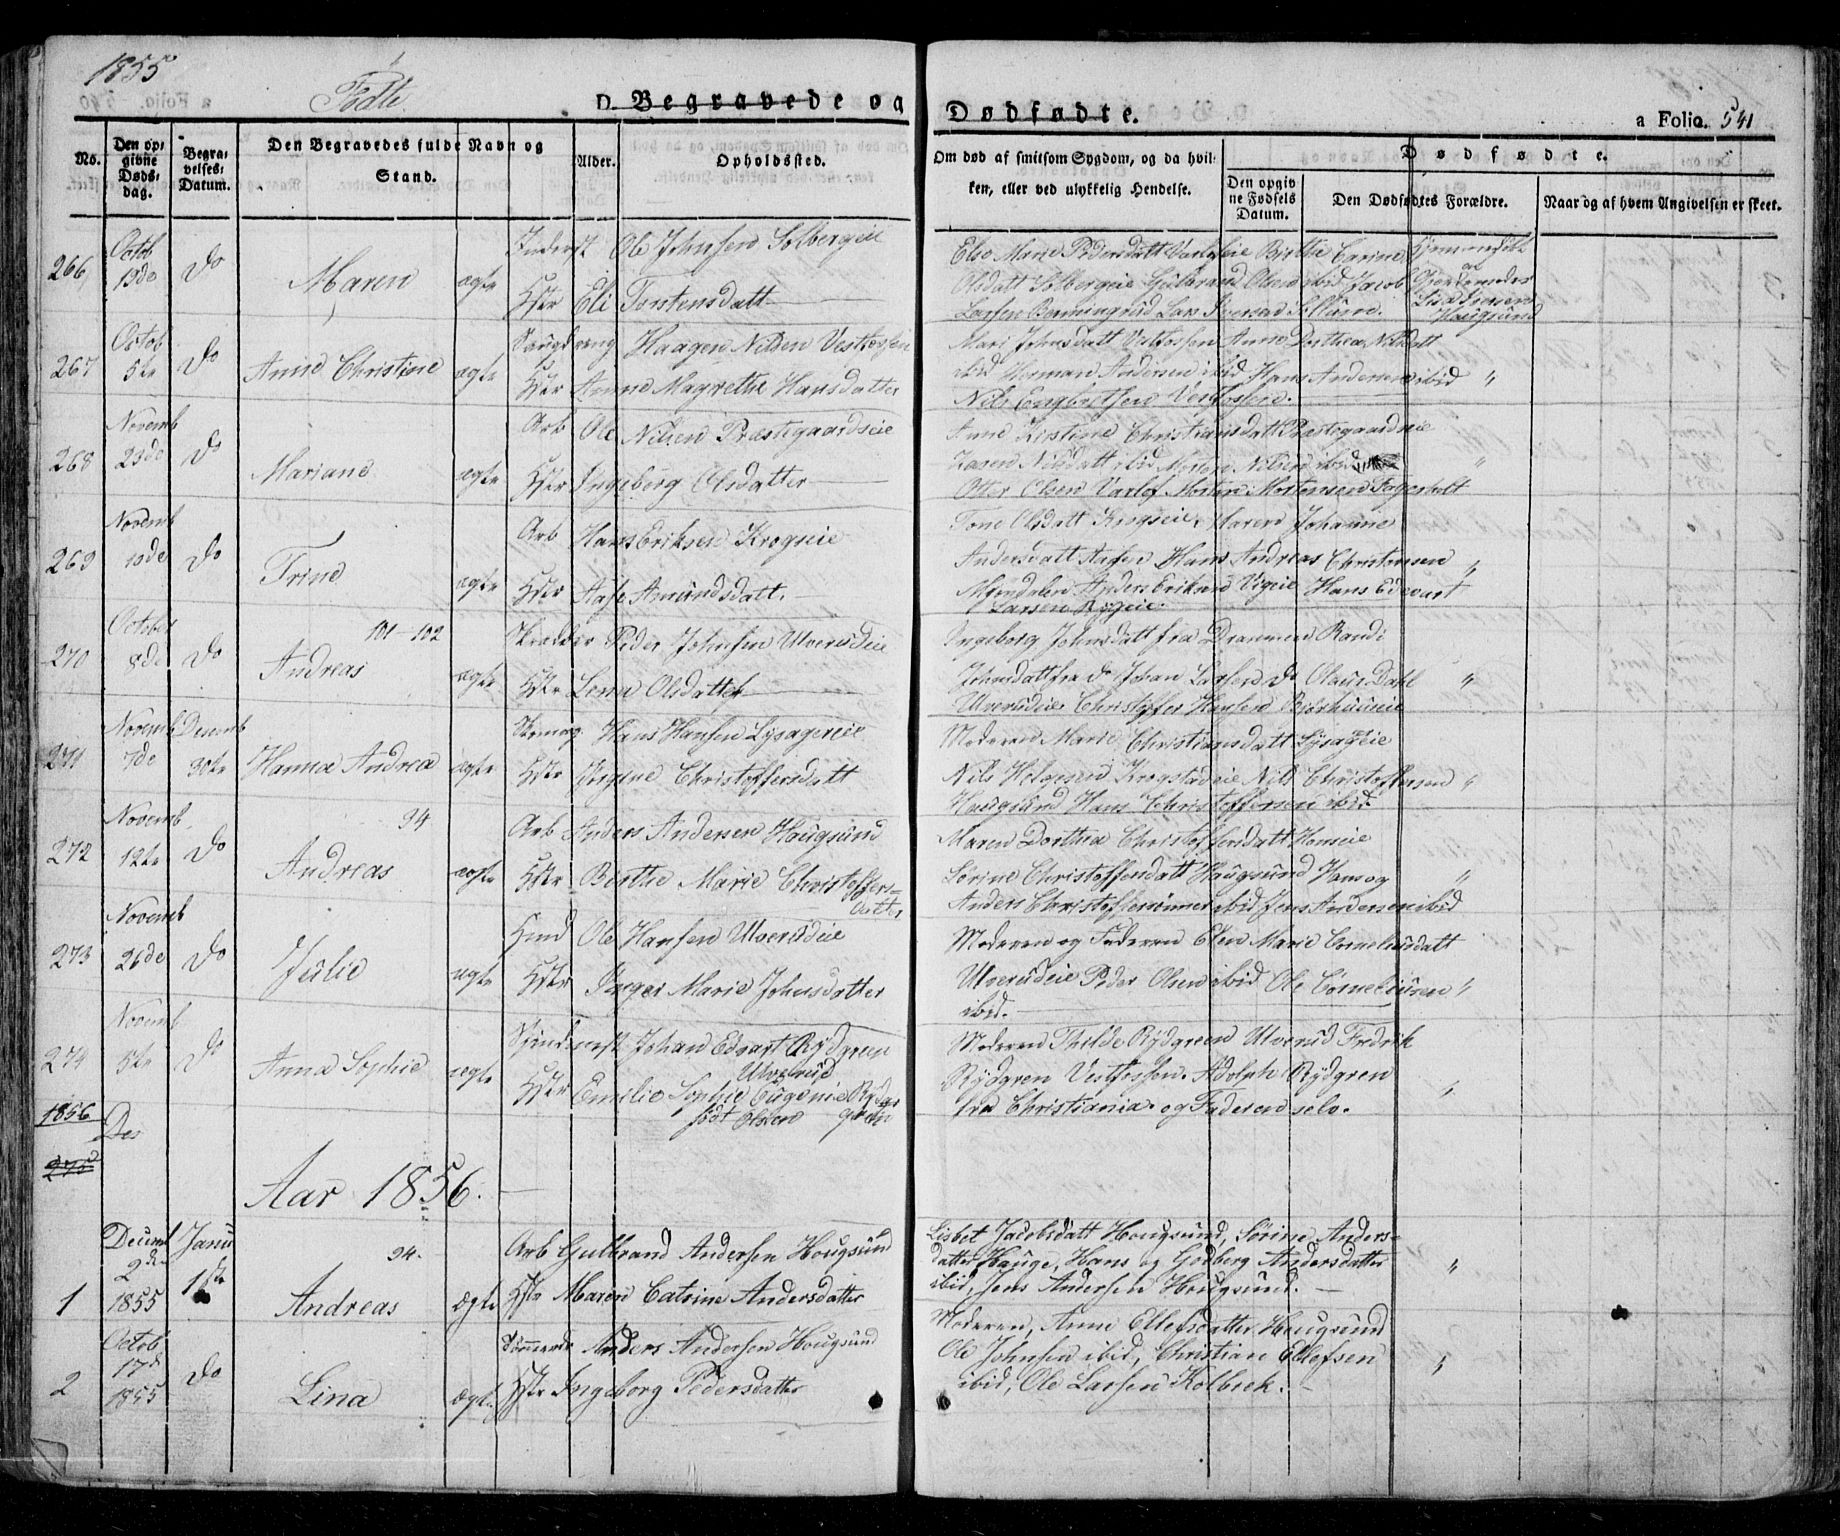 1855
Fødte
D. Begravede og
Dødfødte.
a Folio. 541
No.
Den op-
givne
Døds-
dag.
Begra-
velses-
Datum.
Den Begravedes fulde Navn og
Stand.
Alder.
Opholdssted.
Om død af smitsom Sygdom, og da hvil-
ken, eller ved ulykkelig Hendelse.
Dødfødte.
Den opgiv
ne Fødsels
Datum.
Den Dødfødtes Forældre.
Naar og af hvem Angivelsen er skeet.
266 Octob 19de Do Maren ægte
Inderst Ole Johnsen Solbergeie
Hstr Eli Torstensdatt
Else Marie Pedersdatt Berthe Carine
Olsdatt Solbergeie Gulbrand Olsen ibid Jacob
Larsen Lars Iversen
Haugsund
267 Octob 5te Do Anne Christine ægte
Haagen Nilsen Vestfossen
Hstr Anne Magrethe Hansdatter
Mari Johnsdatt Vestfossen Anne Dorthea Nilsdatt
ibid Herman Andersen ibid Hans Andersen ibid "
Nils Engbrethsen Vestfossen.
268 Novemb 23de Do Mariane ægte
Arb Ole Nilsen Præstegaardseie
Hstr Ingeborg Olsdatter
Anne Kirstine Christiansdatt Præstegaardseie
Nilsdatt ibid Nilsen ibid "
Otter Olsen Varlof Morten Mortensen Fagerholt
269 Novemb 10de Do Trine ægte
Arb Hans Eriksen Krogseie
Hstr Aase Amundsdatt.
Tone Olsdatt Krogseie, Maren Johanne
Andersdatt Aasen Hans Andreas Christensen "
Mjøndalen Anders Eriksen Hans Edevart
Larsen
270 October 8de Do Andreas 101-102 ægte
Skrædder Peder Johnsen Ulverudeie
Hstr Lena Olsdatter
Ingeborg Johnsdatt fra Drammen Randi
Johnsdatt fra do Johan Larsen do Olaus Dahl "
Ulverudeie Christoffer Hansen
271 Novemb 7de Decemb 30te Hanna Andrea ægte
Hans Hansen Lysagereie
Hstr Jørgine Christoffersdatt
Moderen Marie Christiansdatt
Nils Helgesen Krogstadeie Nils Christoffersen "
Haugsund Hans Christoffersen ibid
272 Novemb 12te Do Andreas 94 ægte
Arb Anders Andersen Hougsund
Hstr Berthe Marie Christoffers=
datter
Maren Dorthea Christoffersdatt
Sørine Christoffersdatt Haugsund Hans og "
Anders Christoffersønner ibid Jens Andersen ibid
273 Novemb 26de Do Julie ægte
Hmd Ole Hansen Ulverudeie
Hstr Inger Marie Johnsdatter
Moderen og Faderen Elen Marie Corneliusdatt
Ulverudeie Peder Olsen ibid Ole Corneliusen "
ibid.
274 Novemb 5te Do Anna Sophie ægte
Johan Edvart Rydgreen
Ulverud
Hstr Emilie Sophie Eugenie Rydgr
født Olsen green
Moderen Thilde Rydgreen Ulverud Fredrik
Rydgren Vestfossen. Adolph Rydgren "
fra Christiania. og Faderen selv.
1856 Des
275
Aar 1856.
1 Decemb 2de 1855 Janu 1ste Andreas 94. ægte
Arb Gulbrand Andersen Hougsund
Hstr Maren Catrine Andersdatter
Lisbet Jacobsdatt Hougsund, Sørine Anders=
datter Hauge, Hans og Godberg Andersdatter "
ibid, Jens Andersen Hougsund.
2 Octob 17d 1855 Do Lina ægte
Anders Andersen Hougsund
Hstr Ingeborg Pedersdatter
Moderen, Anne Ellefsdatter Hougsund
Ole Johnsen ibid, Christian Ellefsen "
ibid, Ole Larsen Kolbrek.